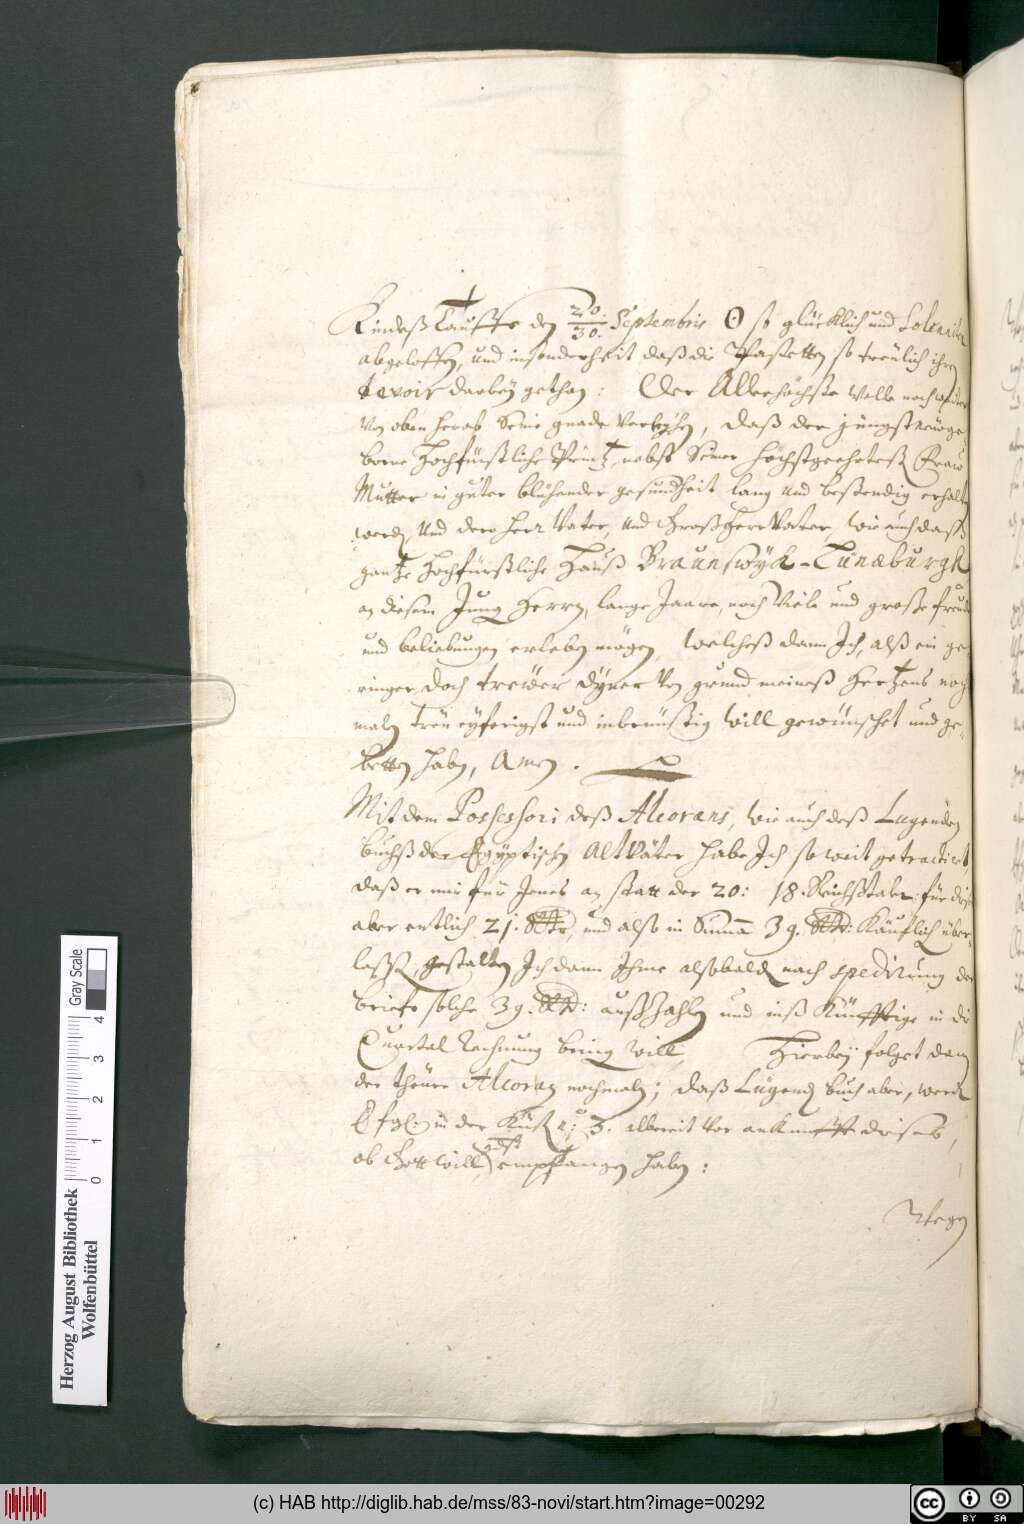 Kindeß Tauffe den 20./30. Septembris ☉ so glücklich und Solenniter
abgeloffen, und insonderheit daß die Pasteten so treulich ihr
devoir darbey gethan: Der Allerhöchste Wolle noch weiter
Von oben herab Seine gnade Verleyhen, daß der jüngst neüge-
borne Hochfürstliche Printz, nebst Seiner Höchstgeehrtesten Fraw
Mutter in guter blühender gesundheit lang und bestendig erhalten
werde, Und dero Herr Vater, und Großherr Vater, wie auch daß
gantze Hochfürstliche Hauß Braunswyk-Lünæburgk
an diesem Jung Herrn, lange Jaare, noch Viele und große freude
und beliebungen erleben mögen, welcheß dann Ich, alß ein ge-
ringer doch trewer dyner Von grund meineß Hertzens noch-
maln treu eyferigst und inbrünstig will gewünschet und ge-
betten haben, Amen.
Mit dem Possessori deß Alcorans, wie auch deß Lugenden
buchß der Egyptischen Altväter habe Ich so weit getractirt,
daß er mir für Jenes an statt der 20: 18. Reichßtaler: für diß
aber entlich 21. Rthr, und also in Summa 39. Rthr: Käuflich über-
laßt, gestalten Ich dann Ihme alsobald nach spedirung der
briefe solche 39. Rthr: außzahlen und inß Künfftige in die
Quartal Rechnung bring will. Hierbey folget dann
der theure Alcoran nochmaln; daß Lugend buch aber, werden
E fgl. in der Kist n.º 3. albereit vor ankunfft dieses,
ob Gott will, empfangen haben:
Wegen
Herzog August Bibliothek
Wolfenbüttel
Gray Scale
0 1 2 3 4
(c) HAB http://diglib.hab.de/mss/83-novi/start.htm?image=00292
cc BY SA